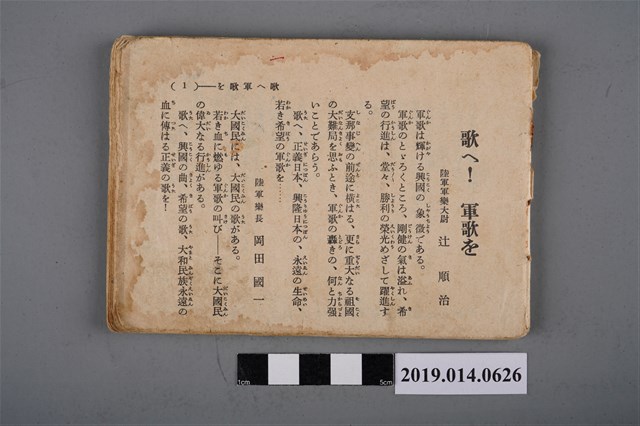 歌へ！　軍歌を
陸軍軍樂大尉　辻　順治
軍歌は輝ける興國の象徵である。
軍歌のとゞろくところ、剛健の氣は溢れ、希
望の行進は、堂々、勝利の榮光めざして躍進す
る。
支那事變の前途に橫はる、更に重大なる祖國
の大難局を思ふとき、軍歌の轟きの、何と力强
いことであらう。
歌へ、正義日本、興隆日本の、永遠の生命、
若き希望の軍歌を……
陸軍樂長　岡田國一
大國民には、大國民の歌がある。
若き血に燃ゆる軍歌の叫び——そこに大國民
の偉大なる行進がある。
歌へ、興國の曲、希望の歌、大和民族永遠の
血に傳はる正義の歌を！
(1)——を歌軍へ歌
1cm
5cm
2019.014.0626